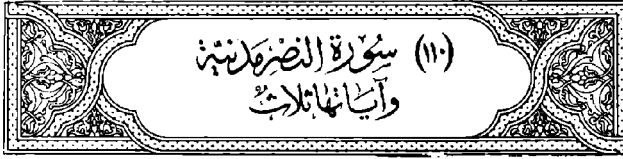 (١١٠) سُورَة النصْر مَدنيَّة
وَآيَاتهَا ثَلَاثٌ